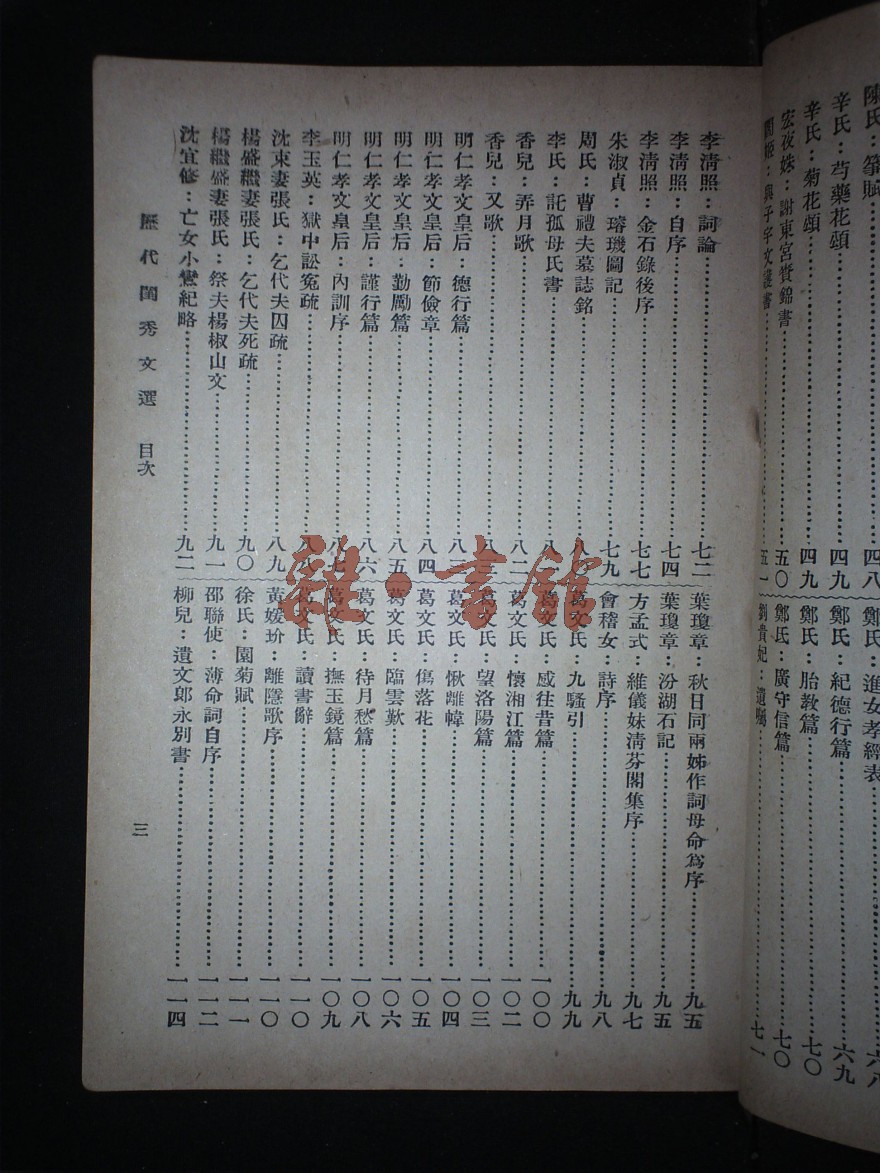 陳氏：箏賦
四八
鄭氏：進女孝經表
六八
辛氏：芍藥花頌
四九
鄭氏：紀德行篇
六九
辛氏：菊花頌
四九
鄭氏：胎教篇
七〇
宏夜姝：謝東宮賚錦書
五〇
鄭氏：廣守信篇
七〇
閻姬：與子宇文護書
五一
劉貴妃：遺囑
七一
李清照：詞論
七二
李清照：自序
七四
李清照：金石錄後序
七七
朱淑貞：璿璣圖記
七九
周氏：曹禮夫墓誌銘
李氏：託孤母氏書
香兒：弄月歌
八二
香兒：又歌
明仁孝文皇后：德行篇
明仁孝文皇后：節儉章
八四
明仁孝文皇后：勤勵篇
八五
明仁孝文皇后：謹行篇
八六
明仁孝文皇后：內訓序
八七
李玉英：獄中訟冤疏
沈束妻張氏：乞代夫囚疏
八九
楊盛繼妻張氏：乞代夫死疏
九〇
楊繼盛妻張氏：祭夫楊椒山文
九一
沈宜修：亡女小鸞紀略
九二
葉瓊章：秋日同兩姊作詞母命爲序
九五
葉瓊章：汾湖石記
九五
方孟式：維儀妹清芬閣集序
九七
會稽女：詩序
九八
葛文氏：九騷引
九九
葛文氏：感往昔篇
一〇〇
葛文氏：懷湘江篇
一〇二
葛文氏：望洛陽篇
一〇三
葛文氏：愀離幃
一〇四
葛文氏：傷落花
一〇五
葛文氏：臨雲歎
一〇六
葛文氏：待月愁篇
一〇八
葛文氏：撫玉鏡篇
一〇九
葛文氏：讀書辭
一一〇
黃媛玠：離隱歌序
一一〇
徐氏：園菊賦
一一一
邵聯使：薄命詞自序
一一二
柳兒：遺文郎永別書
一一四
歷代閨秀文選 目次
三
雜·書館